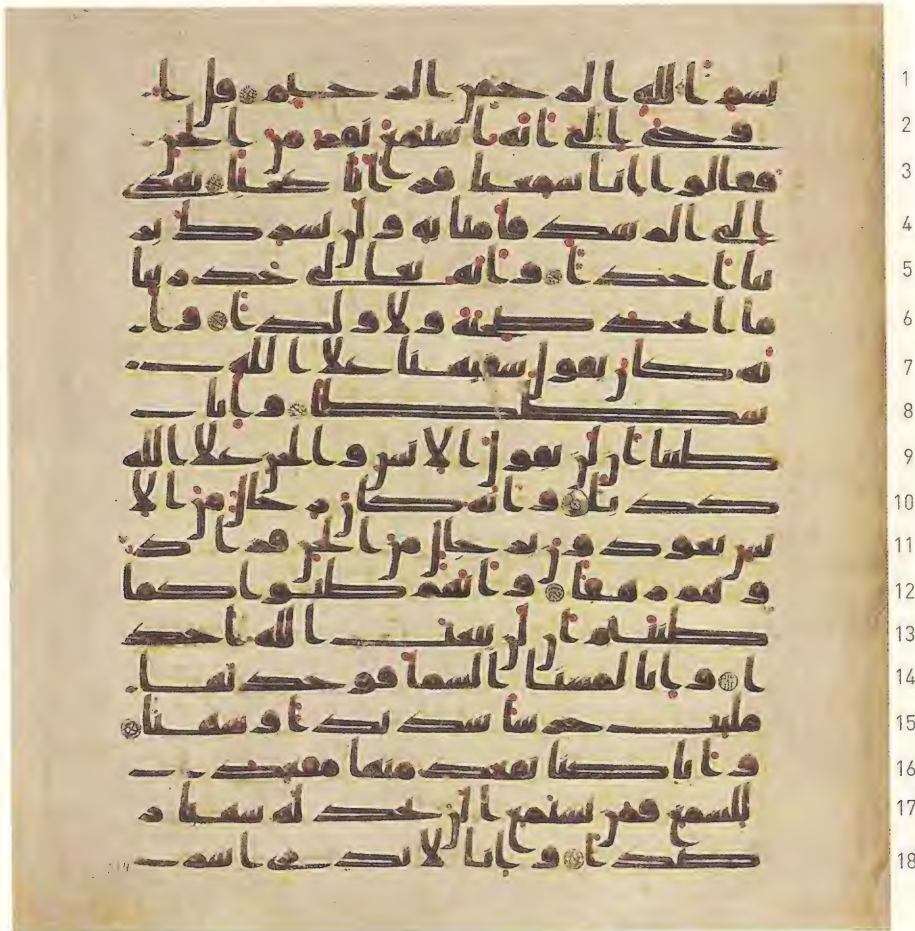 بسم الله الرحمن الرحيم قل ا 1
وحي الي انه استمع نفر من الجن 2
فقالوا انا سمعنا قرانا عجبا يهدي 3
الي الرشد فامنا به ولن نشرك بر 4
بنا احدا وانه تعلى جد ربنا 5
ما اتخذ صحبة ولا ولدا وا 6
نه كان يقول سفيهنا علا الله 7
شططا وانا 8
ظننا ان لن تقول الانس والجن علا الله 9
كذبا وانه كان رجال من الا 10
نس يعوذون برجال من الجن فزاد 11
وهم رهقا وانهم ظنوا كما 12
ظننتم ان لن يبعث الله احد 13
ا وانا لمسنا السما فوجدنها 14
مليت حرسا شديدا وشهبا 15
وانا كنا نقعد منها مقعد 16
للسمع فمن يستمع الان يجد له شهبا ر 17
صدا وانا لا ندري اشر 18